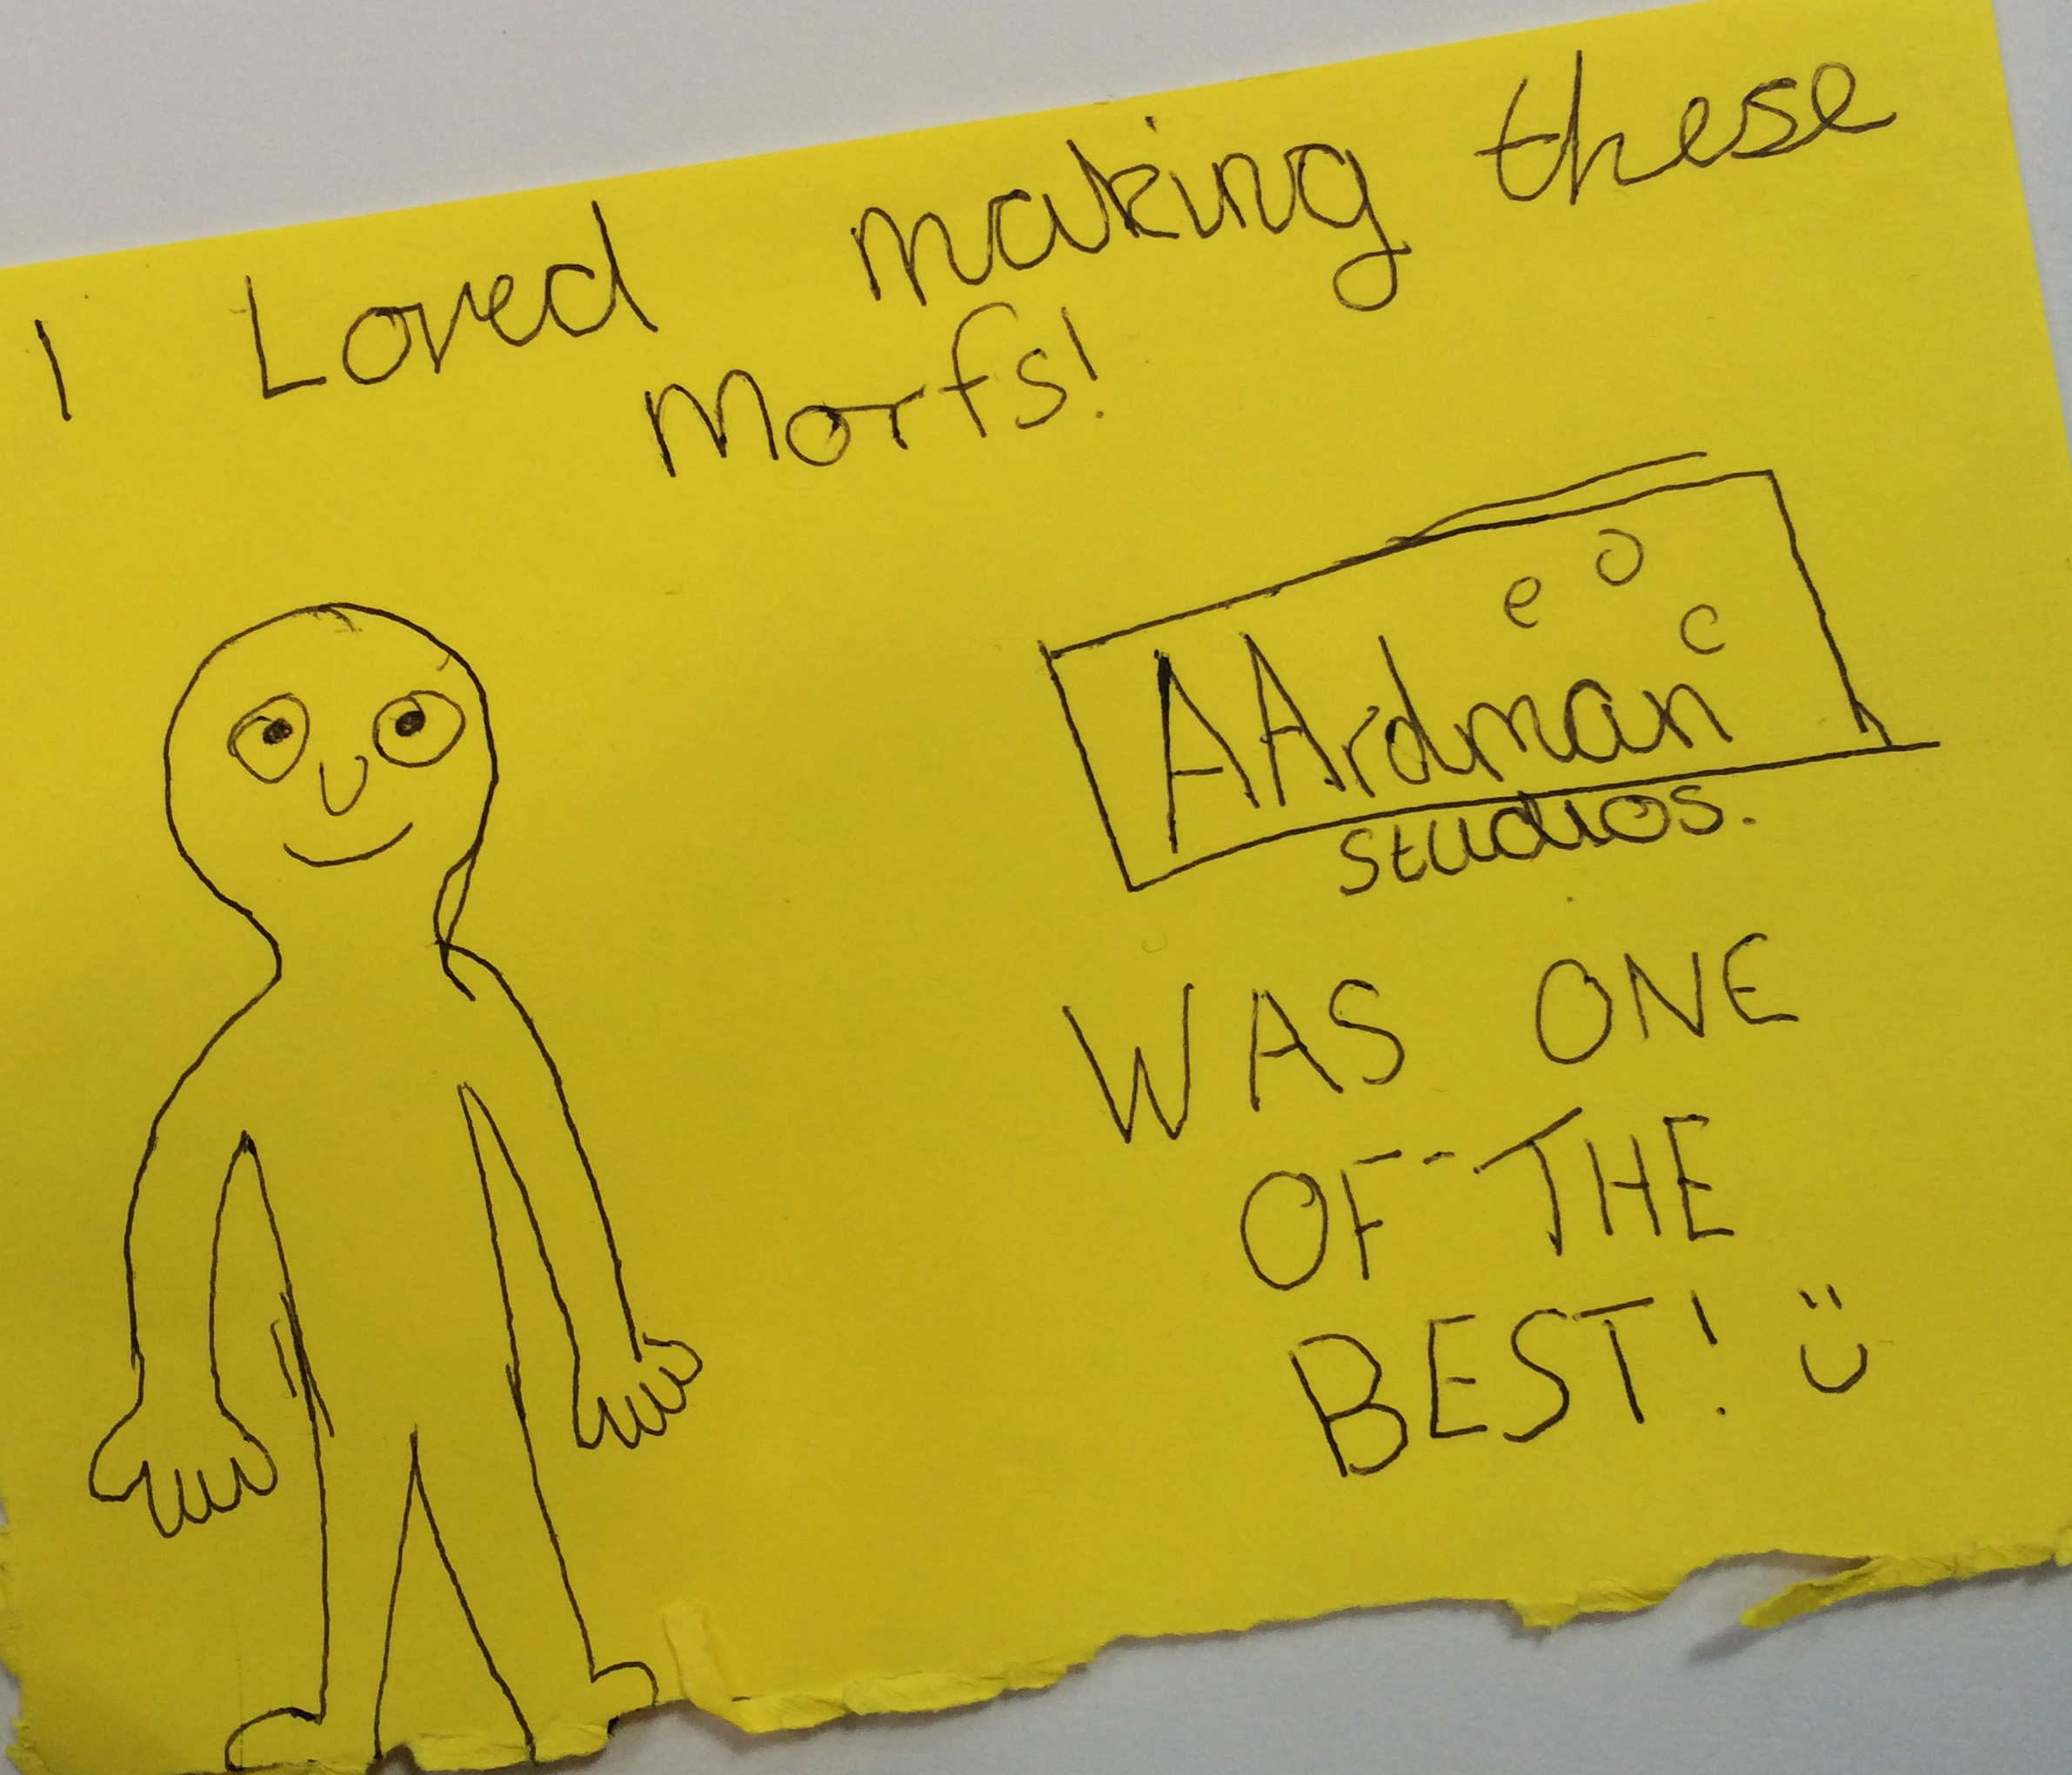 I Loved making these
Morfs!
AArdman
studios.
WAS ONE
OF THE
BEST! :)